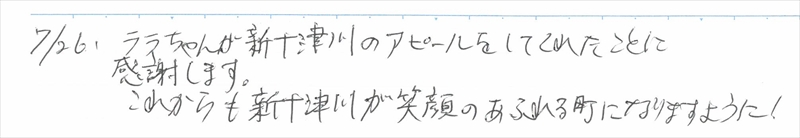 7/26. ララちゃんが新十津川のアピールをしてくれたことに
感謝します。
これからも新十津川が笑顔のあふれる町になりますように!